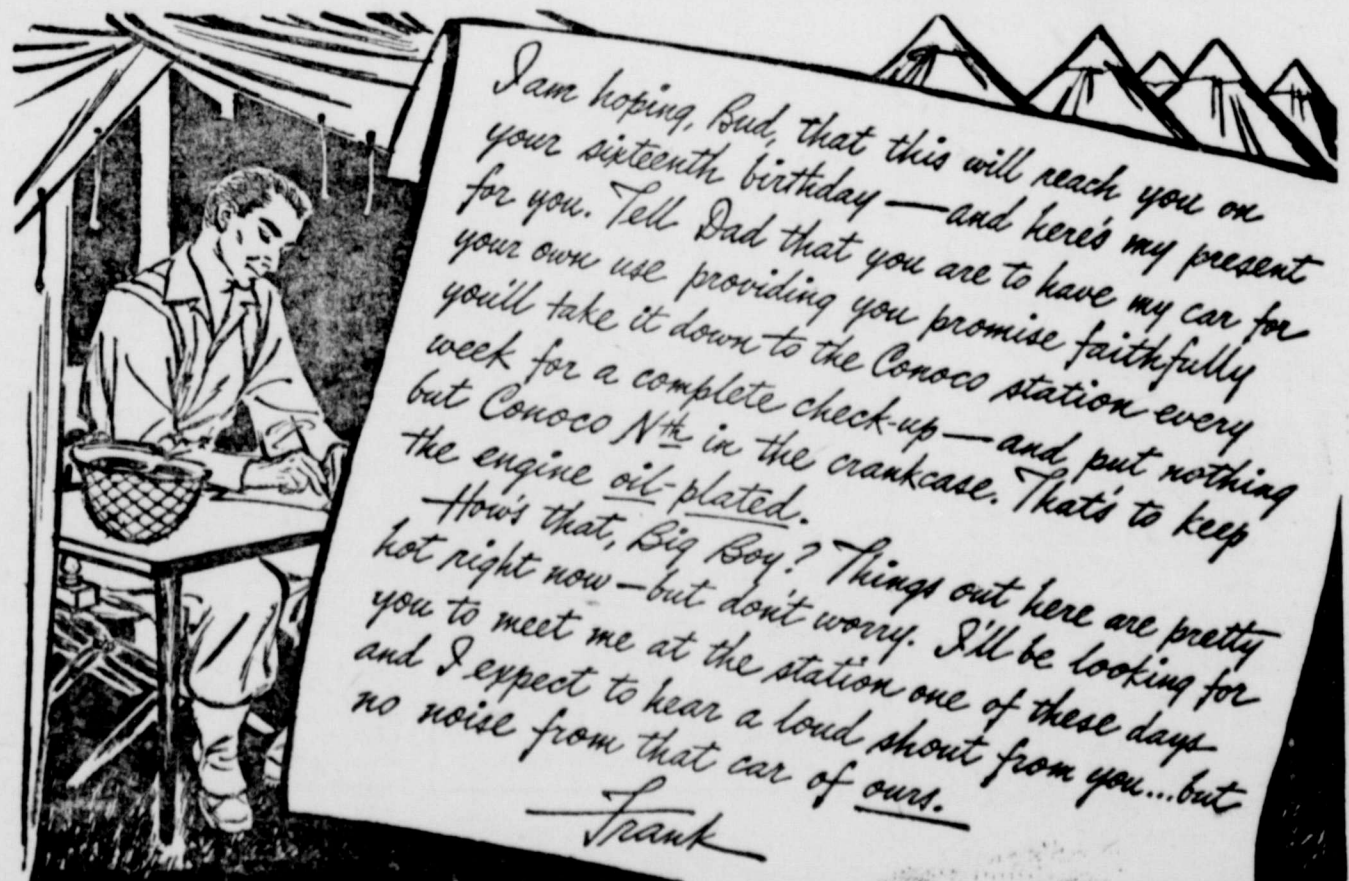 I am hoping, Bud, that this will reach you on
your sixteenth birthday — and here's my present
for you. Tell Dad that you are to have my car for
your own use providing you promise faithfully
you'll take it down to the Conoco station every
week for a complete check-up — and put nothing
but Conoco Nth in the crankcase. That's to keep
the engine oil-plated.
How's that, Big Boy? Things out here are pretty
hot right now — but don't worry. I'll be looking for
you to meet me at the station one of these days
and I expect to hear a loud shout from you... but
no noise from that car of ours.
Frank